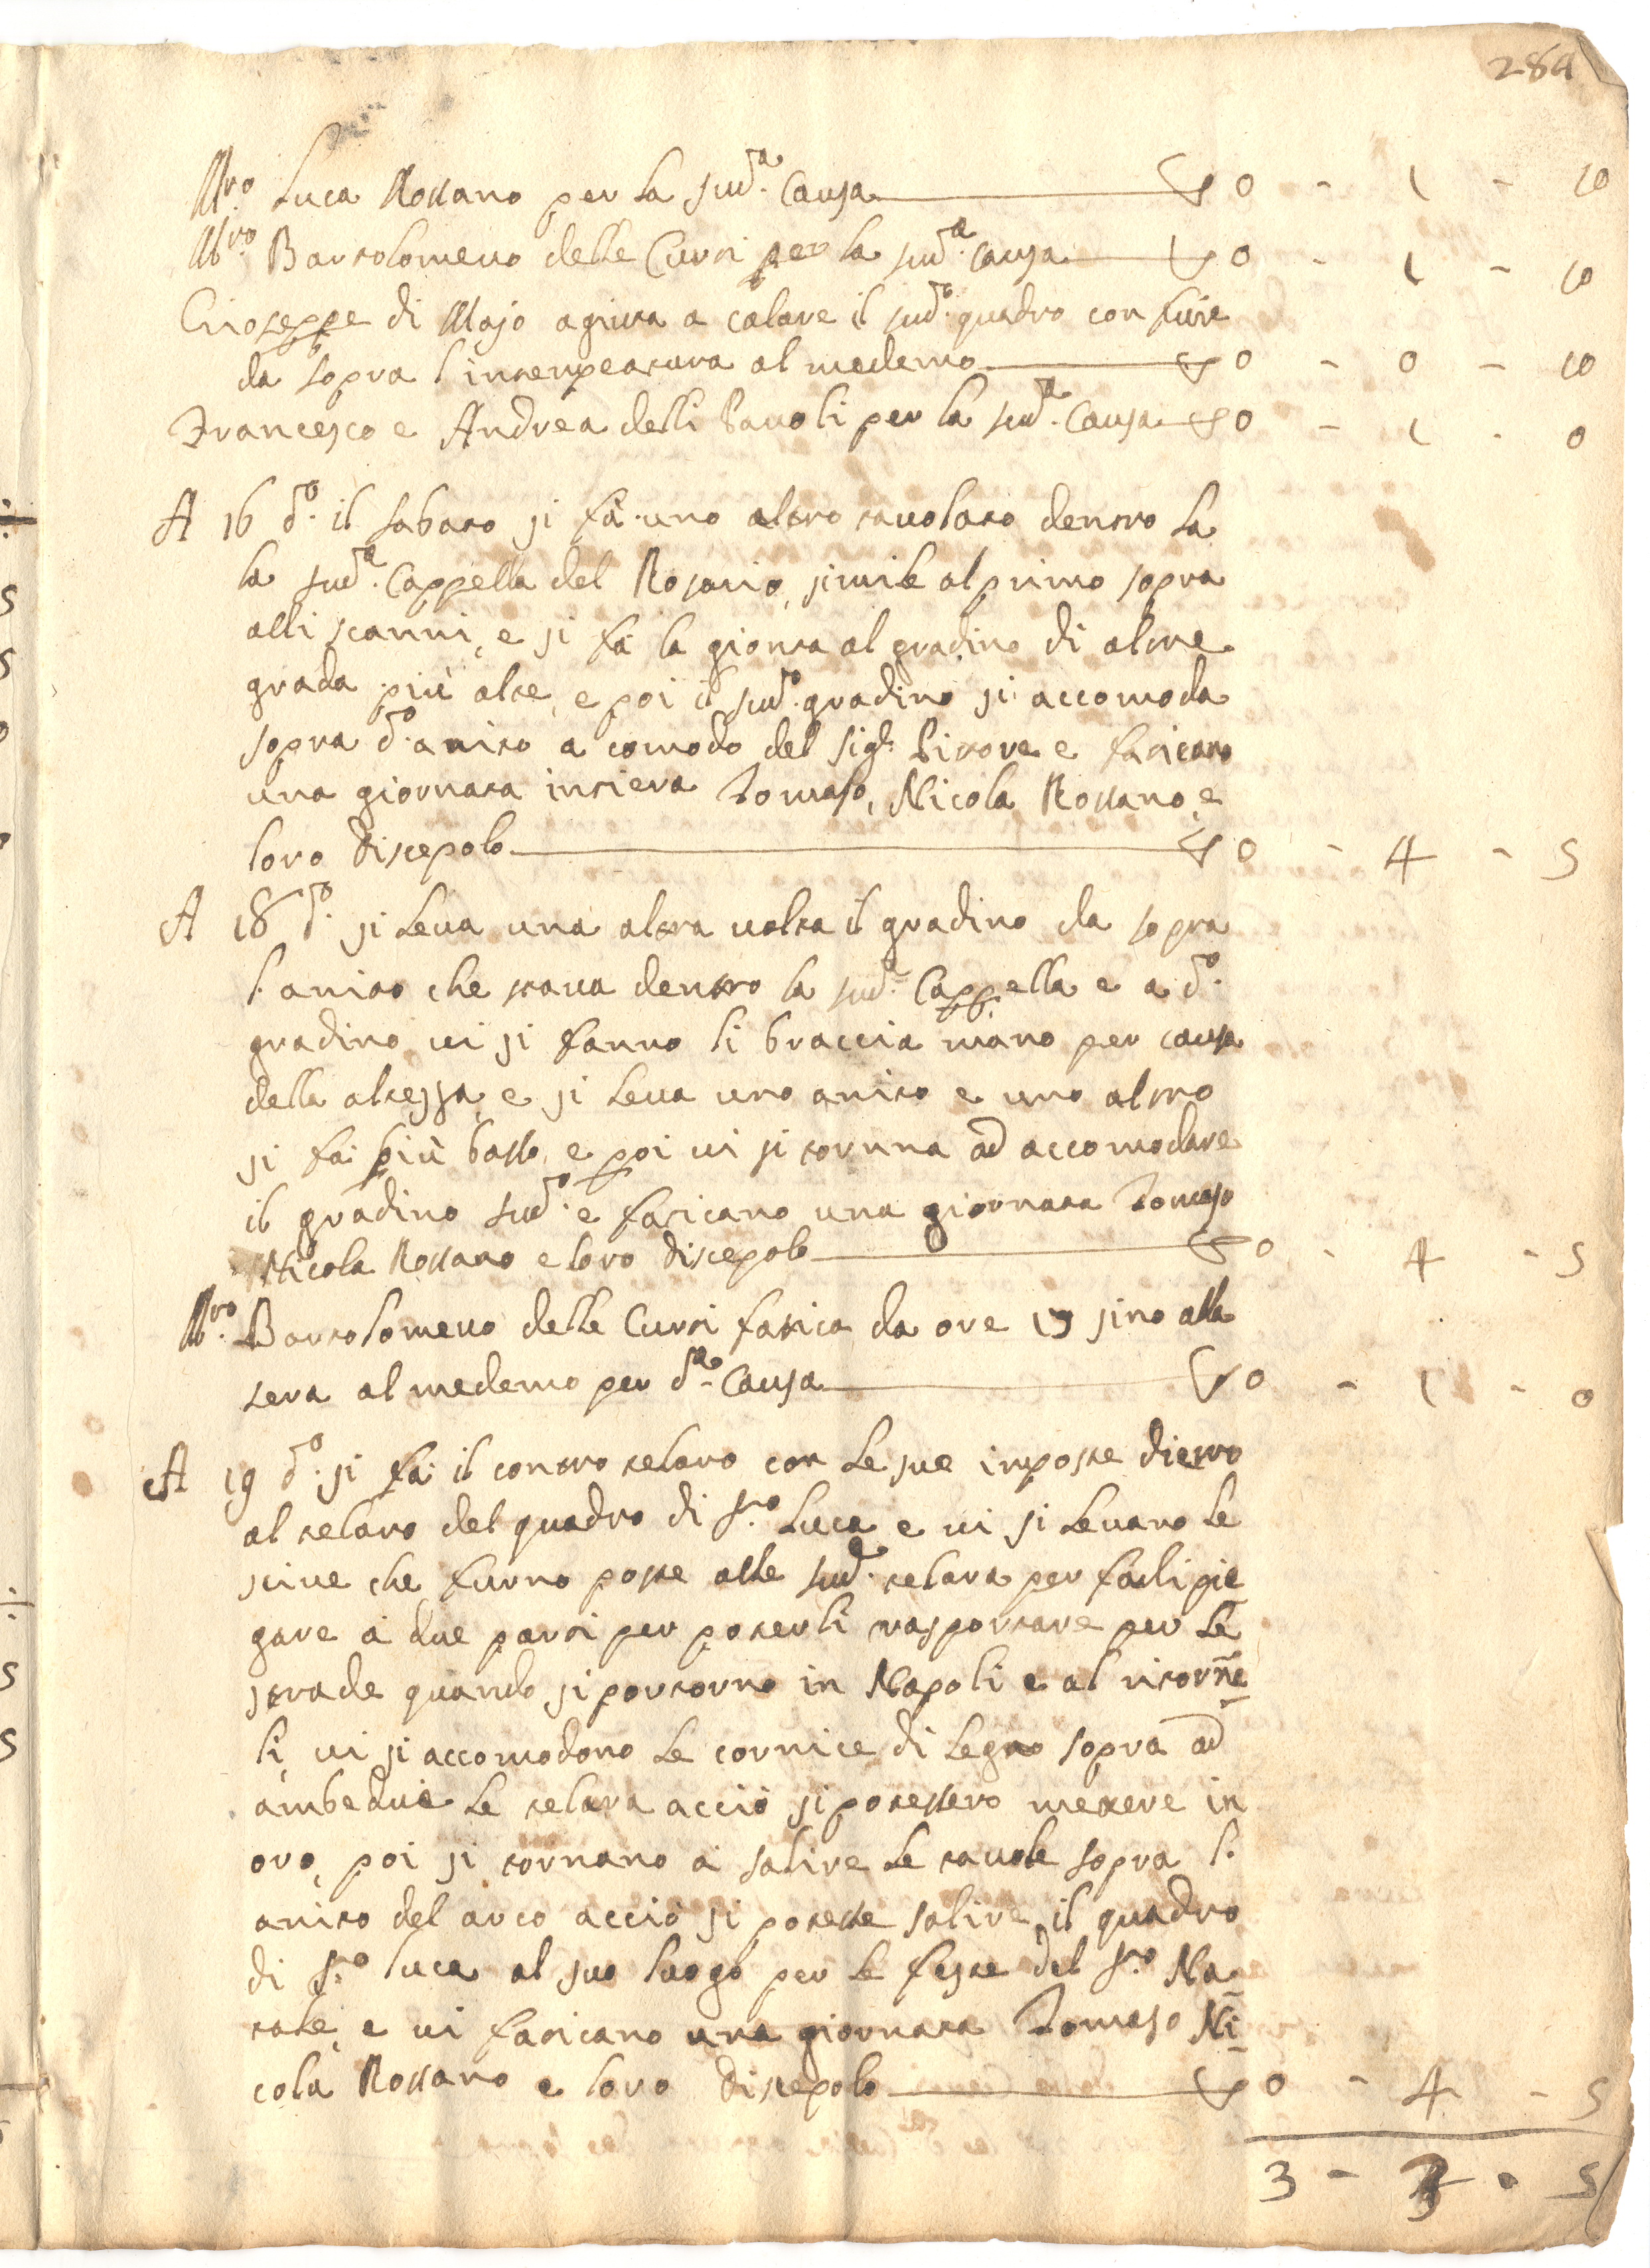 284
Mro. Luca Rossano per la sud.a Causa — D 0 - 1 - 10
Mro. Bartolomeuo delle Curti per la sud.a causa — D 0 - 1 - 10
Gioseppe di Majo agiuta a calare il sud.o quadro con fune
da sopra l'intempeatura al medemo — D 0 - 0 - 10
Francesco e Andrea delli Pauoli per la sud.a Causa — D 0 - 1 - 0
A 16 d.o il sabato si fà uno altro tauolato dentro la
la sud.a Cappella del Rosario, simile al primo sopra
alli scanni, e si fà la gionta al gradino di altre
grada più alte, e poi il sud.o gradino si accomoda
sopra d.o anito a comodo del Sig.r Pittore e faticano
una giornata intiera Tomaso, Nicola Rossano, e
loro discepolo — D 0 - 4 - 5
A 18 d.o si leua una altra uolta il gradino da sopra
l'anito che staua dentro la sud.a Cappella e a d.o
gradino ui si fanno li braccia mano per causa
della altezza, e si leua uno anito e uno altro
si fà più basso, e poi ui si torna ad accomodare
il gradino sud.o e faticano una giornata Tomaso
Nicola Rossano e loro discepolo — D 0 - 4 - 5
Mro. Bartolomeuo delle Curti fatica da ore 19 sino alla
sera al medemo per d.a Causa — D 0 - 1 - 0
A 19 d.o si fà il contro telaro con le sue imposte dietro
al telaro del quadro di S.to Luca e ui si leuano le
sciue che furno poste alle sud.e telara per farli pie
gare à due parti per poterli trasportare per le
strade quando si portorno in Napoli e al ritorne
li, ui si accomodono le cornice di legno sopra ad
ambedue le telara acciò si potessero mettere in
oro, poi si tornano à salire le tauole sopra l'
anito del arco acciò si potesse salire il quadro
di S.to Luca al suo luogo per le feste del S.to Na
tale, e ui faticano una giornata Tomaso Ni
cola Rossano e loro discepolo — D 0 - 4 - 5
3 - 3 - 5